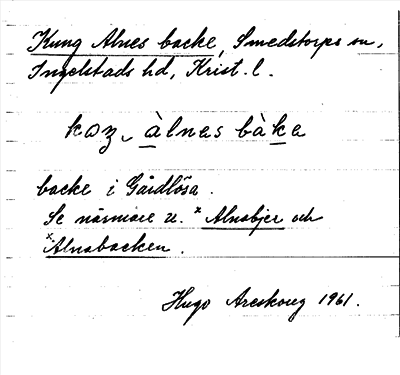 Kung Alnes backe, Smedstorps sn,
Ingelstads hd, Krist. l.
àlnas bàka
backe i Gårdlösa.
Se närmare u. ˣAlnabjer och
ˣAlnabacken.
Hugo Areskoug 1961.